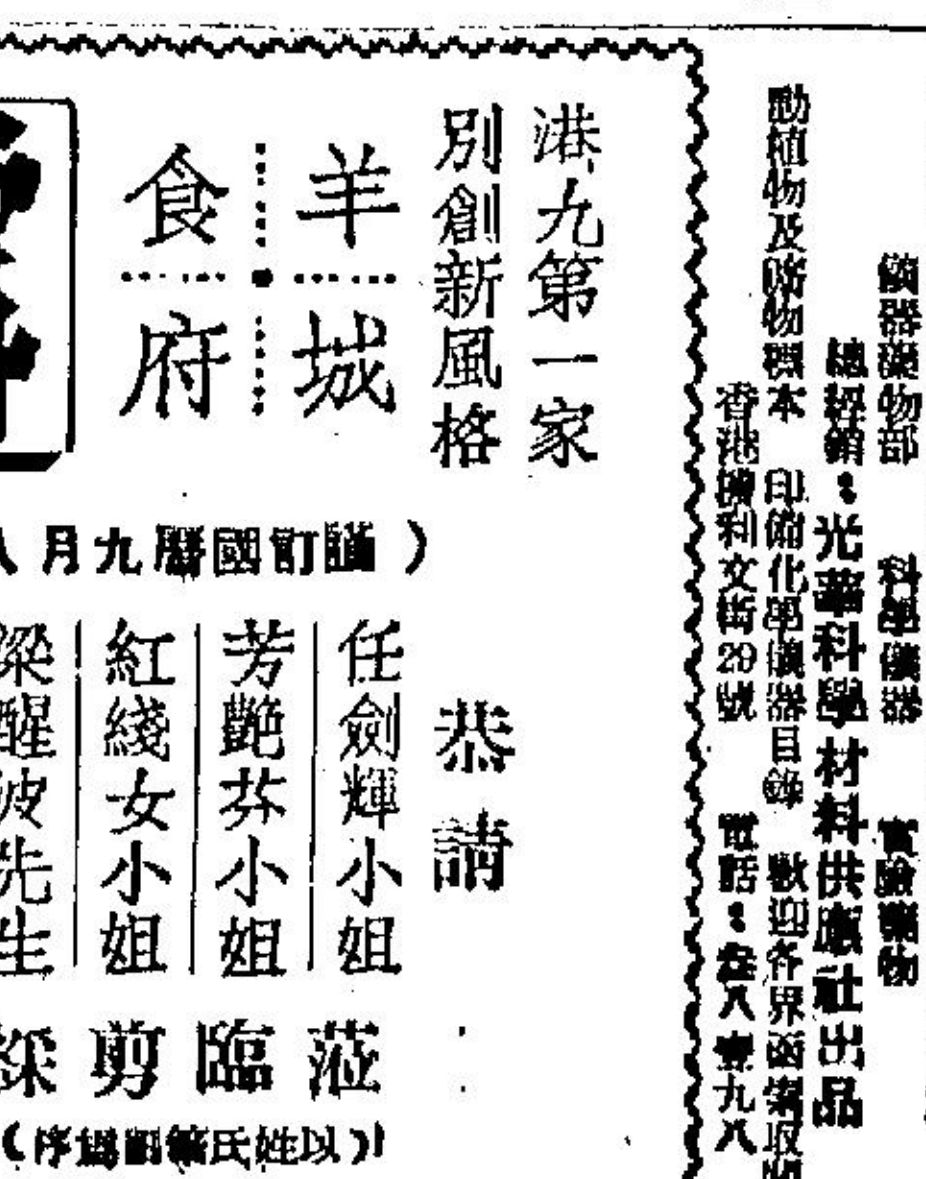 儀器藥物部 科學儀器 實驗藥物
總經銷：光華科學材料供應社出品
動植物及礦物標本 印備化學儀器目錄 歡迎各界函索取閱
香港 利文街29號 電話：叁八壹九八
港九第一家
別創新風格
羊城
食府
（謹訂國曆九月八
恭請
任劍輝小姐
芳艷芬小姐
紅綫女小姐
梁醒波先生
蒞臨剪綵
（以姓氏筆劃為序）